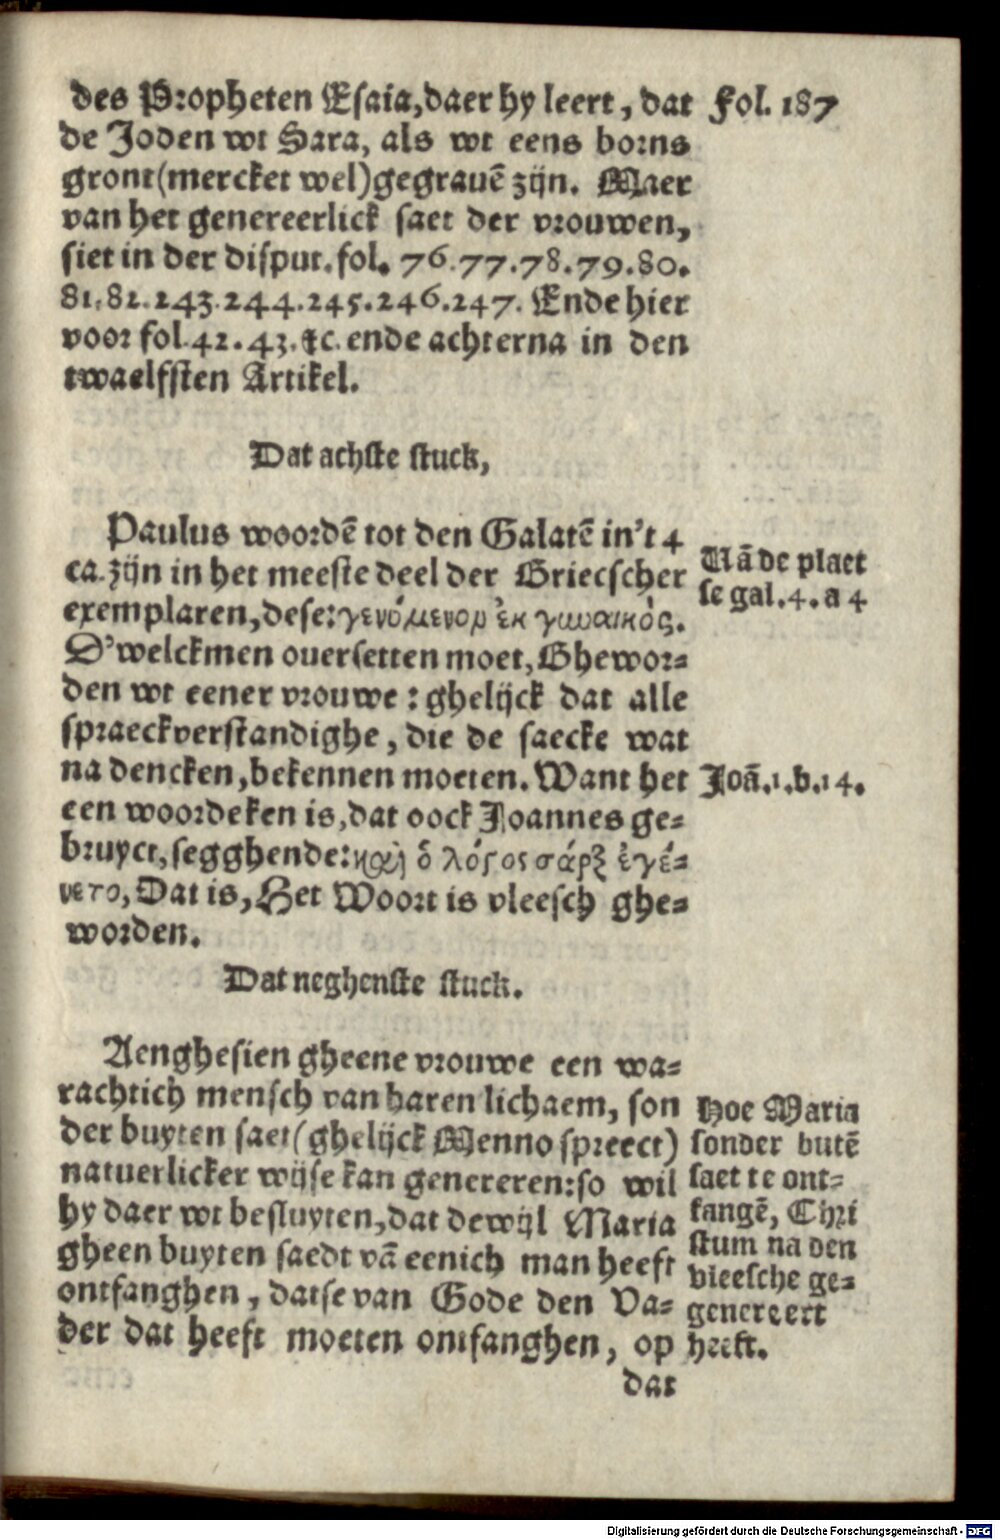 des Propheten Esaia, daer hy leert, dat
Fol. 187
de Joden wt Sara, als wt eens borns
gront (mercket wel) gegrauē zijn. Maer
van het genereerlick saet der vrouwen,
siet in der disput. fol. 76.77.78.79.80.
81.82.243.244.245.246.247. Ende hier
voor fol. 42.43. ꝛc. ende achterna in den
twaelfsten Artikel.
Dat achste stuck,
Paulus woordē tot den Galatē in't 4
ca. zijn in het meeste deel der Griecscher
exemplaren, dese: γενόμενον ἐκ γυναικός.
D'welckmen ouersetten moet, Ghewor-
den wt eener vrouwe: ghelijck dat alle
spraeckverstandighe, die de saecke wat
na dencken, bekennen moeten. Want het
een woordeken is, dat oock Joannes ge-
bruyct, segghende: καὶ ὁ λόγος σάρξ ἐγέ-
νετο, Dat is, Het Woort is vleesch ghe-
worden.
Uā de plaet
se gal. 4. a 4
Joā. 1. b. 14.
Dat neghenste stuck.
Aenghesien gheene vrouwe een wa-
rachtich mensch van haren lichaem, son
der buyten saet (ghelijck Menno spreect)
natuerlicker wijse kan genereren: so wil
hy daer wt besluyten, dat dewijl Maria
gheen buyten saedt vā eenich man heeft
ontfanghen, datse van Gode den Va-
der dat heeft moeten ontfanghen, op
Hoe Maria
sonder butē
saet te ont-
fangē, Chri
stum na den
vleesche ge-
genereert
heeft.
dat
Digitalisierung gefördert durch die Deutsche Forschungsgemeinschaft - DFG